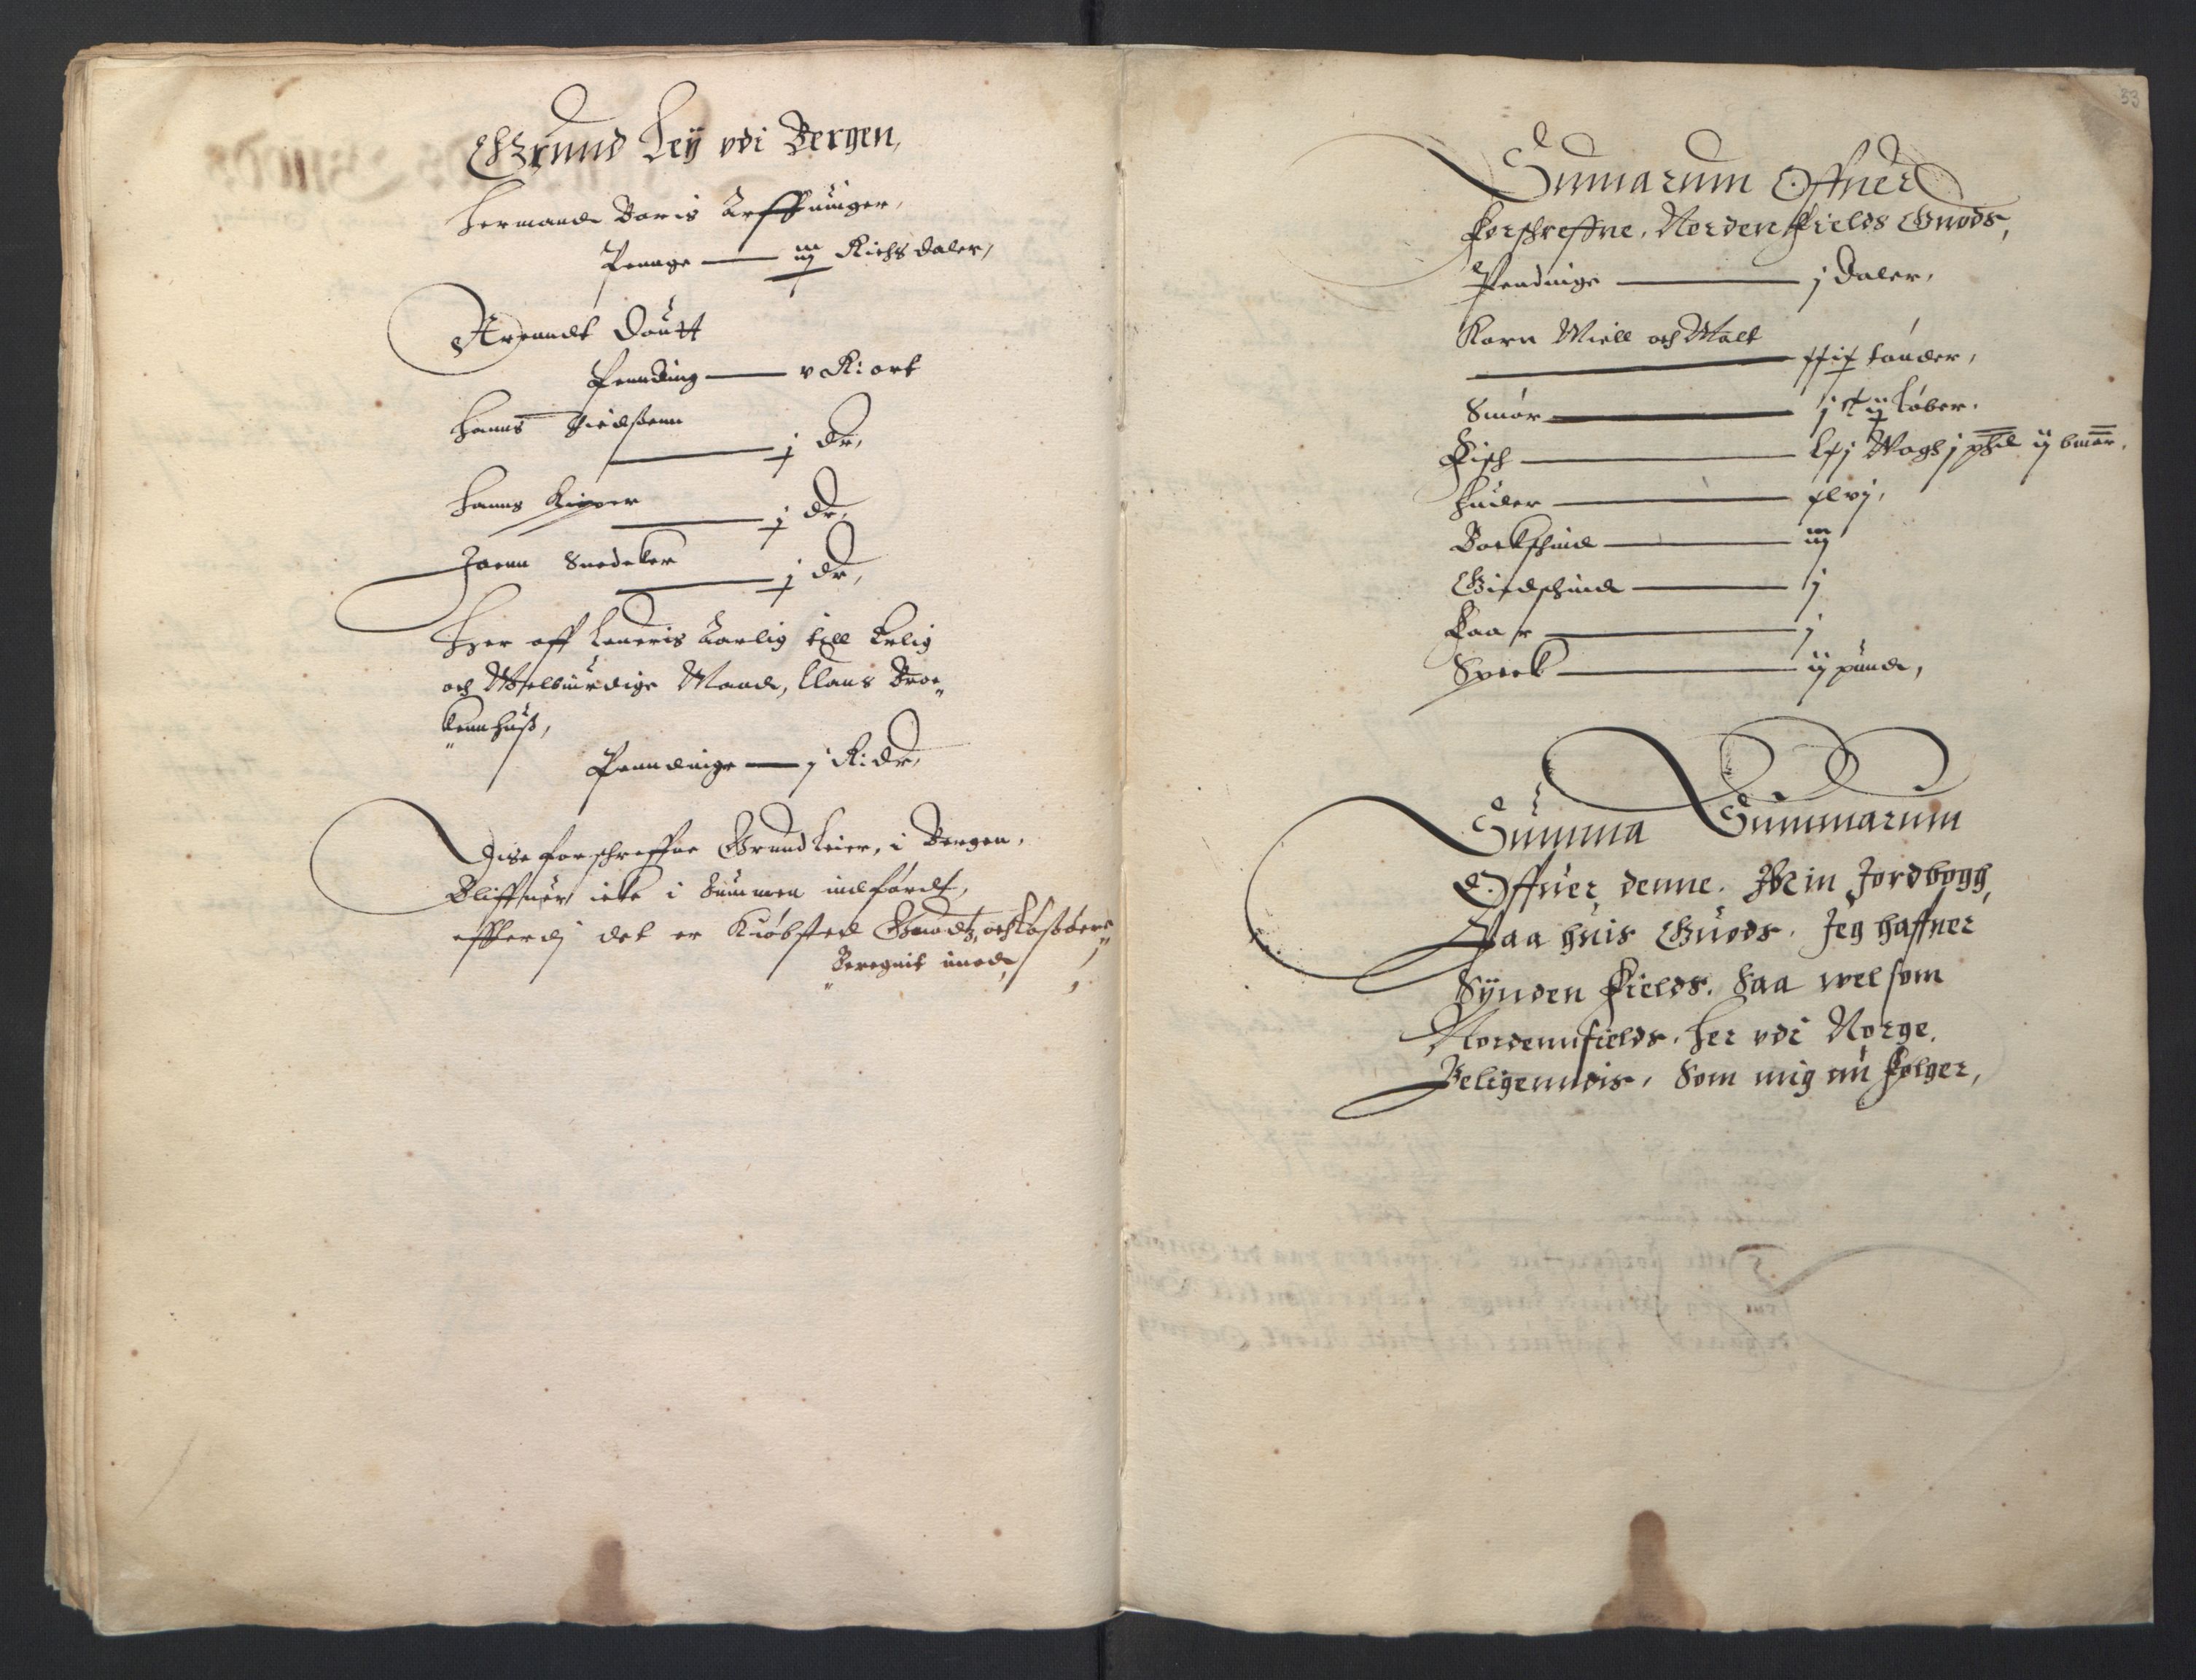 Grund Leÿ vdi Bergen,
Hermandt Boris Arffuinger,
Penge — iij Richsdaler,
Arenndt Doutt
Pennding — v Ri: ort
Hanns
— j dr,
Hanns Kipper
— j dr,
Joenn Snedeker
— j dr,
Her aff leueris Aarlig till Erlig
och Welburdige Mand, Claus Broc„
„kennhuß,
Penndinge — j R: dr,
Disse forschreffne Grund Leier, i Bergen,
Bliffuer icke i Summen indførdt,
effterdj det er Kiøbsted Guodtz, och
„Beregnit imod,
33
Summarum Offuer
Forschreffne, Norden Fields Guods,
Pendinge — j Daler,
Korn Miell och Malt
— xxix tønder,
Smør — løber.
Fisch — lxj Wogh j pd ij bmr.
Huder — xlvj,
Bockschind — iij
Giedschind — j
Faar — j
Speck — ij pund,
Summa Summarum
Offuer denne, Min Jordbogg,
Paa huis Guods, Jeg haffuer
Sÿnden Fields, Saa welsom
Nordennfields, her vdi Norge,
Beligenndis, Som mig nu Følger,